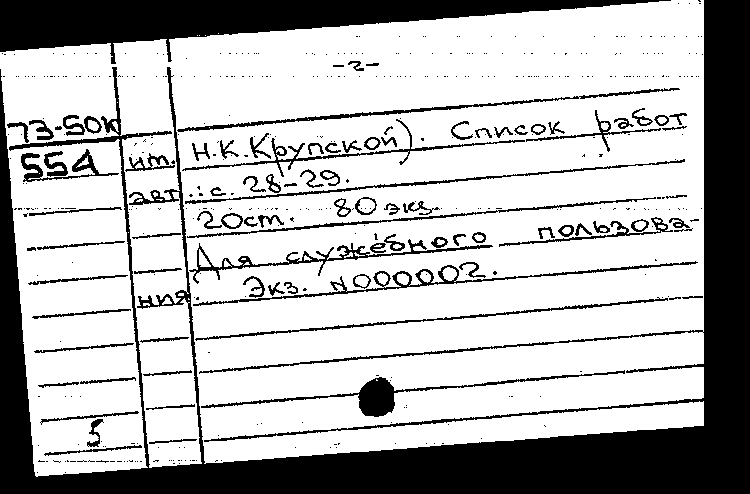 -2-
73-50к
554
им. Н.К.Крупской). Список работ
авт.: с. 28-29.
20см. 80 экз.
Для служебного пользова-
ния. Экз. №000002.
5